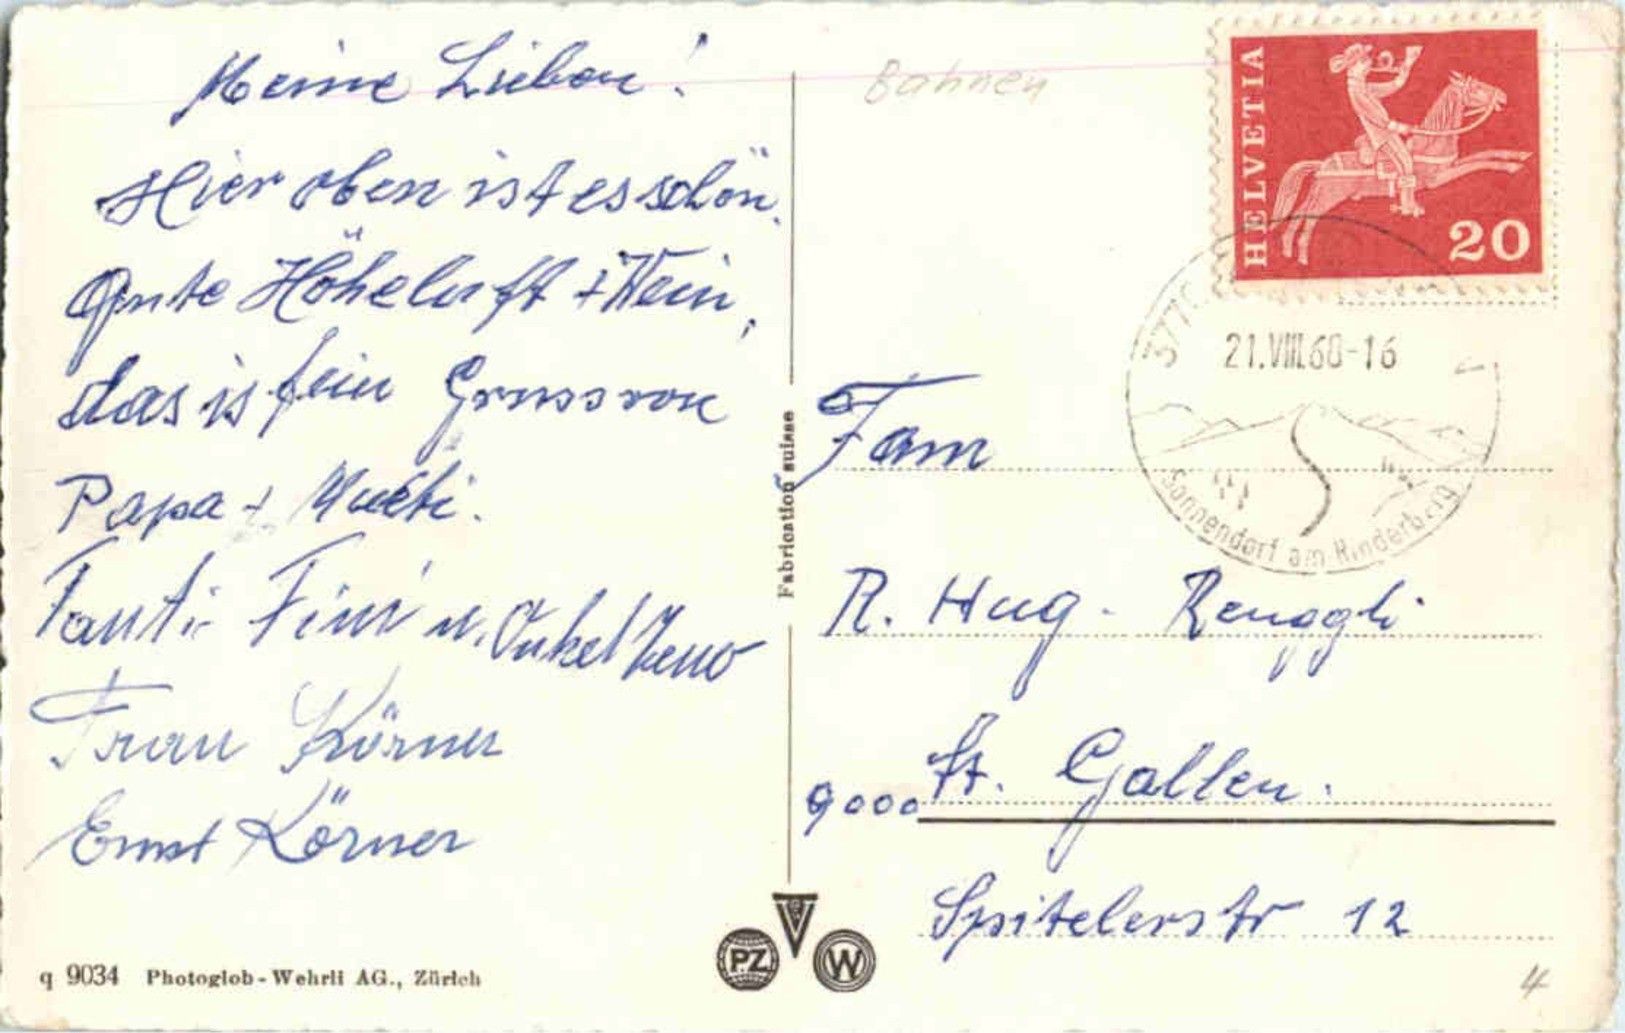 Meine Lieben!
Hier oben ist es schön.
Gute Höheluft + Wein,
das is fein Gruss von
Papa + Mueti.
Tanti Fini u. Onkel Zeno
Frau Körner
Ernst Körner
q 9034 Photoglob-Wehrli AG., Zürich
Fabrication suisse
PZ
W
Bahnen
HELVETIA
20
21.VIII.68-16
Sonnendorf am Rinderberg
Fam
R. Hug - Renggli
9000 St. Gallen.
Spitelerstr 12
4